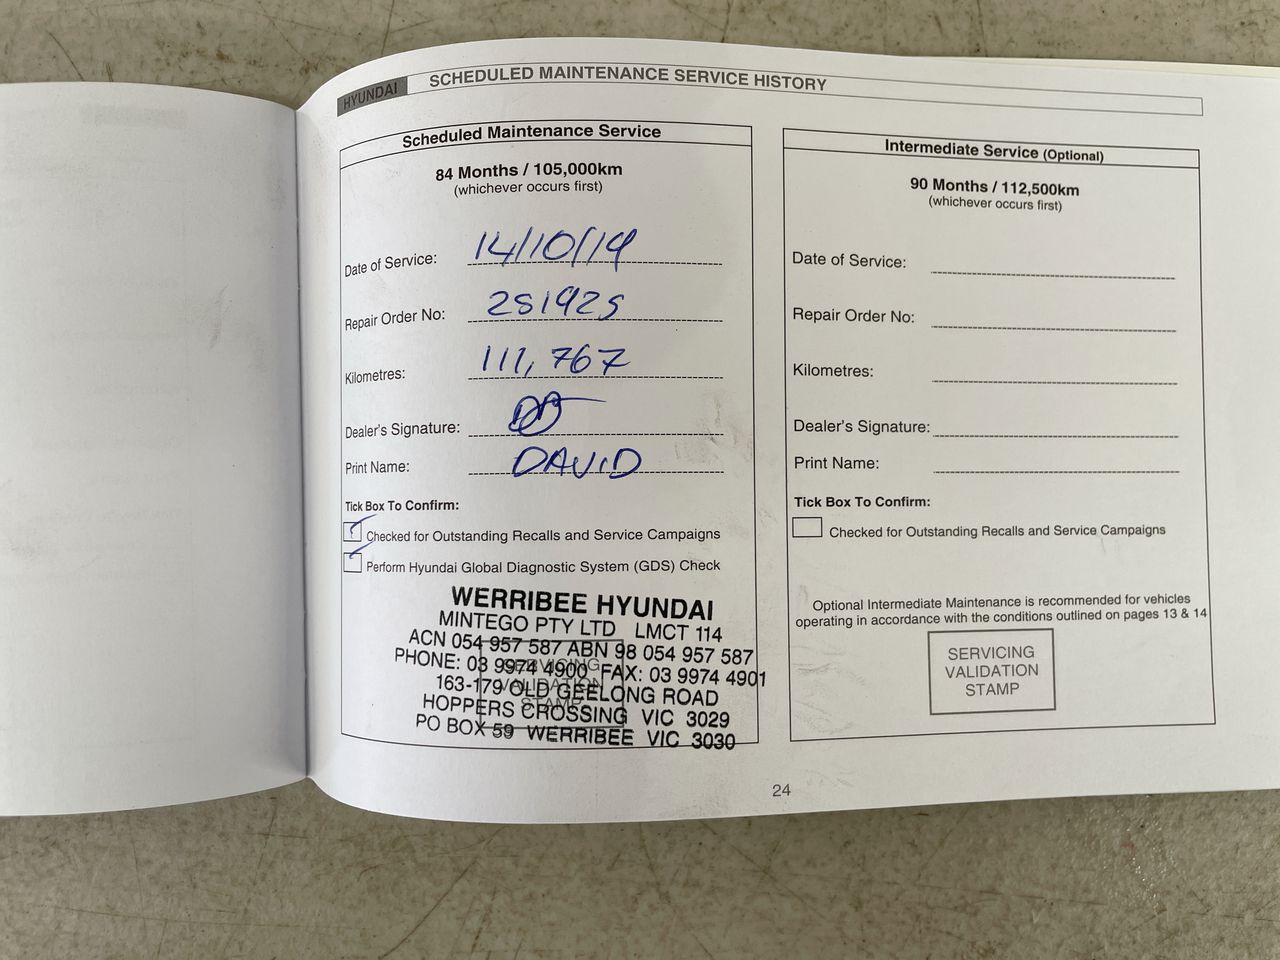 HYUNDAI SCHEDULED MAINTENANCE SERVICE HISTORY
Scheduled Maintenance Service
84 Months / 105,000km
(whichever occurs first)
Date of Service: 14/10/19
Repair Order No: 251925
Kilometres: 111,767
Dealer's Signature:
Print Name: DAVID
Tick Box To Confirm:
Checked for Outstanding Recalls and Service Campaigns
Perform Hyundai Global Diagnostic System (GDS) Check
SERVICING
VALIDATION
STAMP
WERRIBEE HYUNDAI
MINTEGO PTY LTD LMCT 114
ACN 054 957 587 ABN 98 054 957 587
PHONE: 03 9974 4900 FAX: 03 9974 4901
163-179 OLD GEELONG ROAD
HOPPERS CROSSING VIC 3029
PO BOX 59 WERRIBEE VIC 3030
Intermediate Service (Optional)
90 Months / 112,500km
(whichever occurs first)
Date of Service:
Repair Order No:
Kilometres:
Dealer's Signature:
Print Name:
Tick Box To Confirm:
Checked for Outstanding Recalls and Service Campaigns
Optional Intermediate Maintenance is recommended for vehicles
operating in accordance with the conditions outlined on pages 13 & 14
SERVICING
VALIDATION
STAMP
24